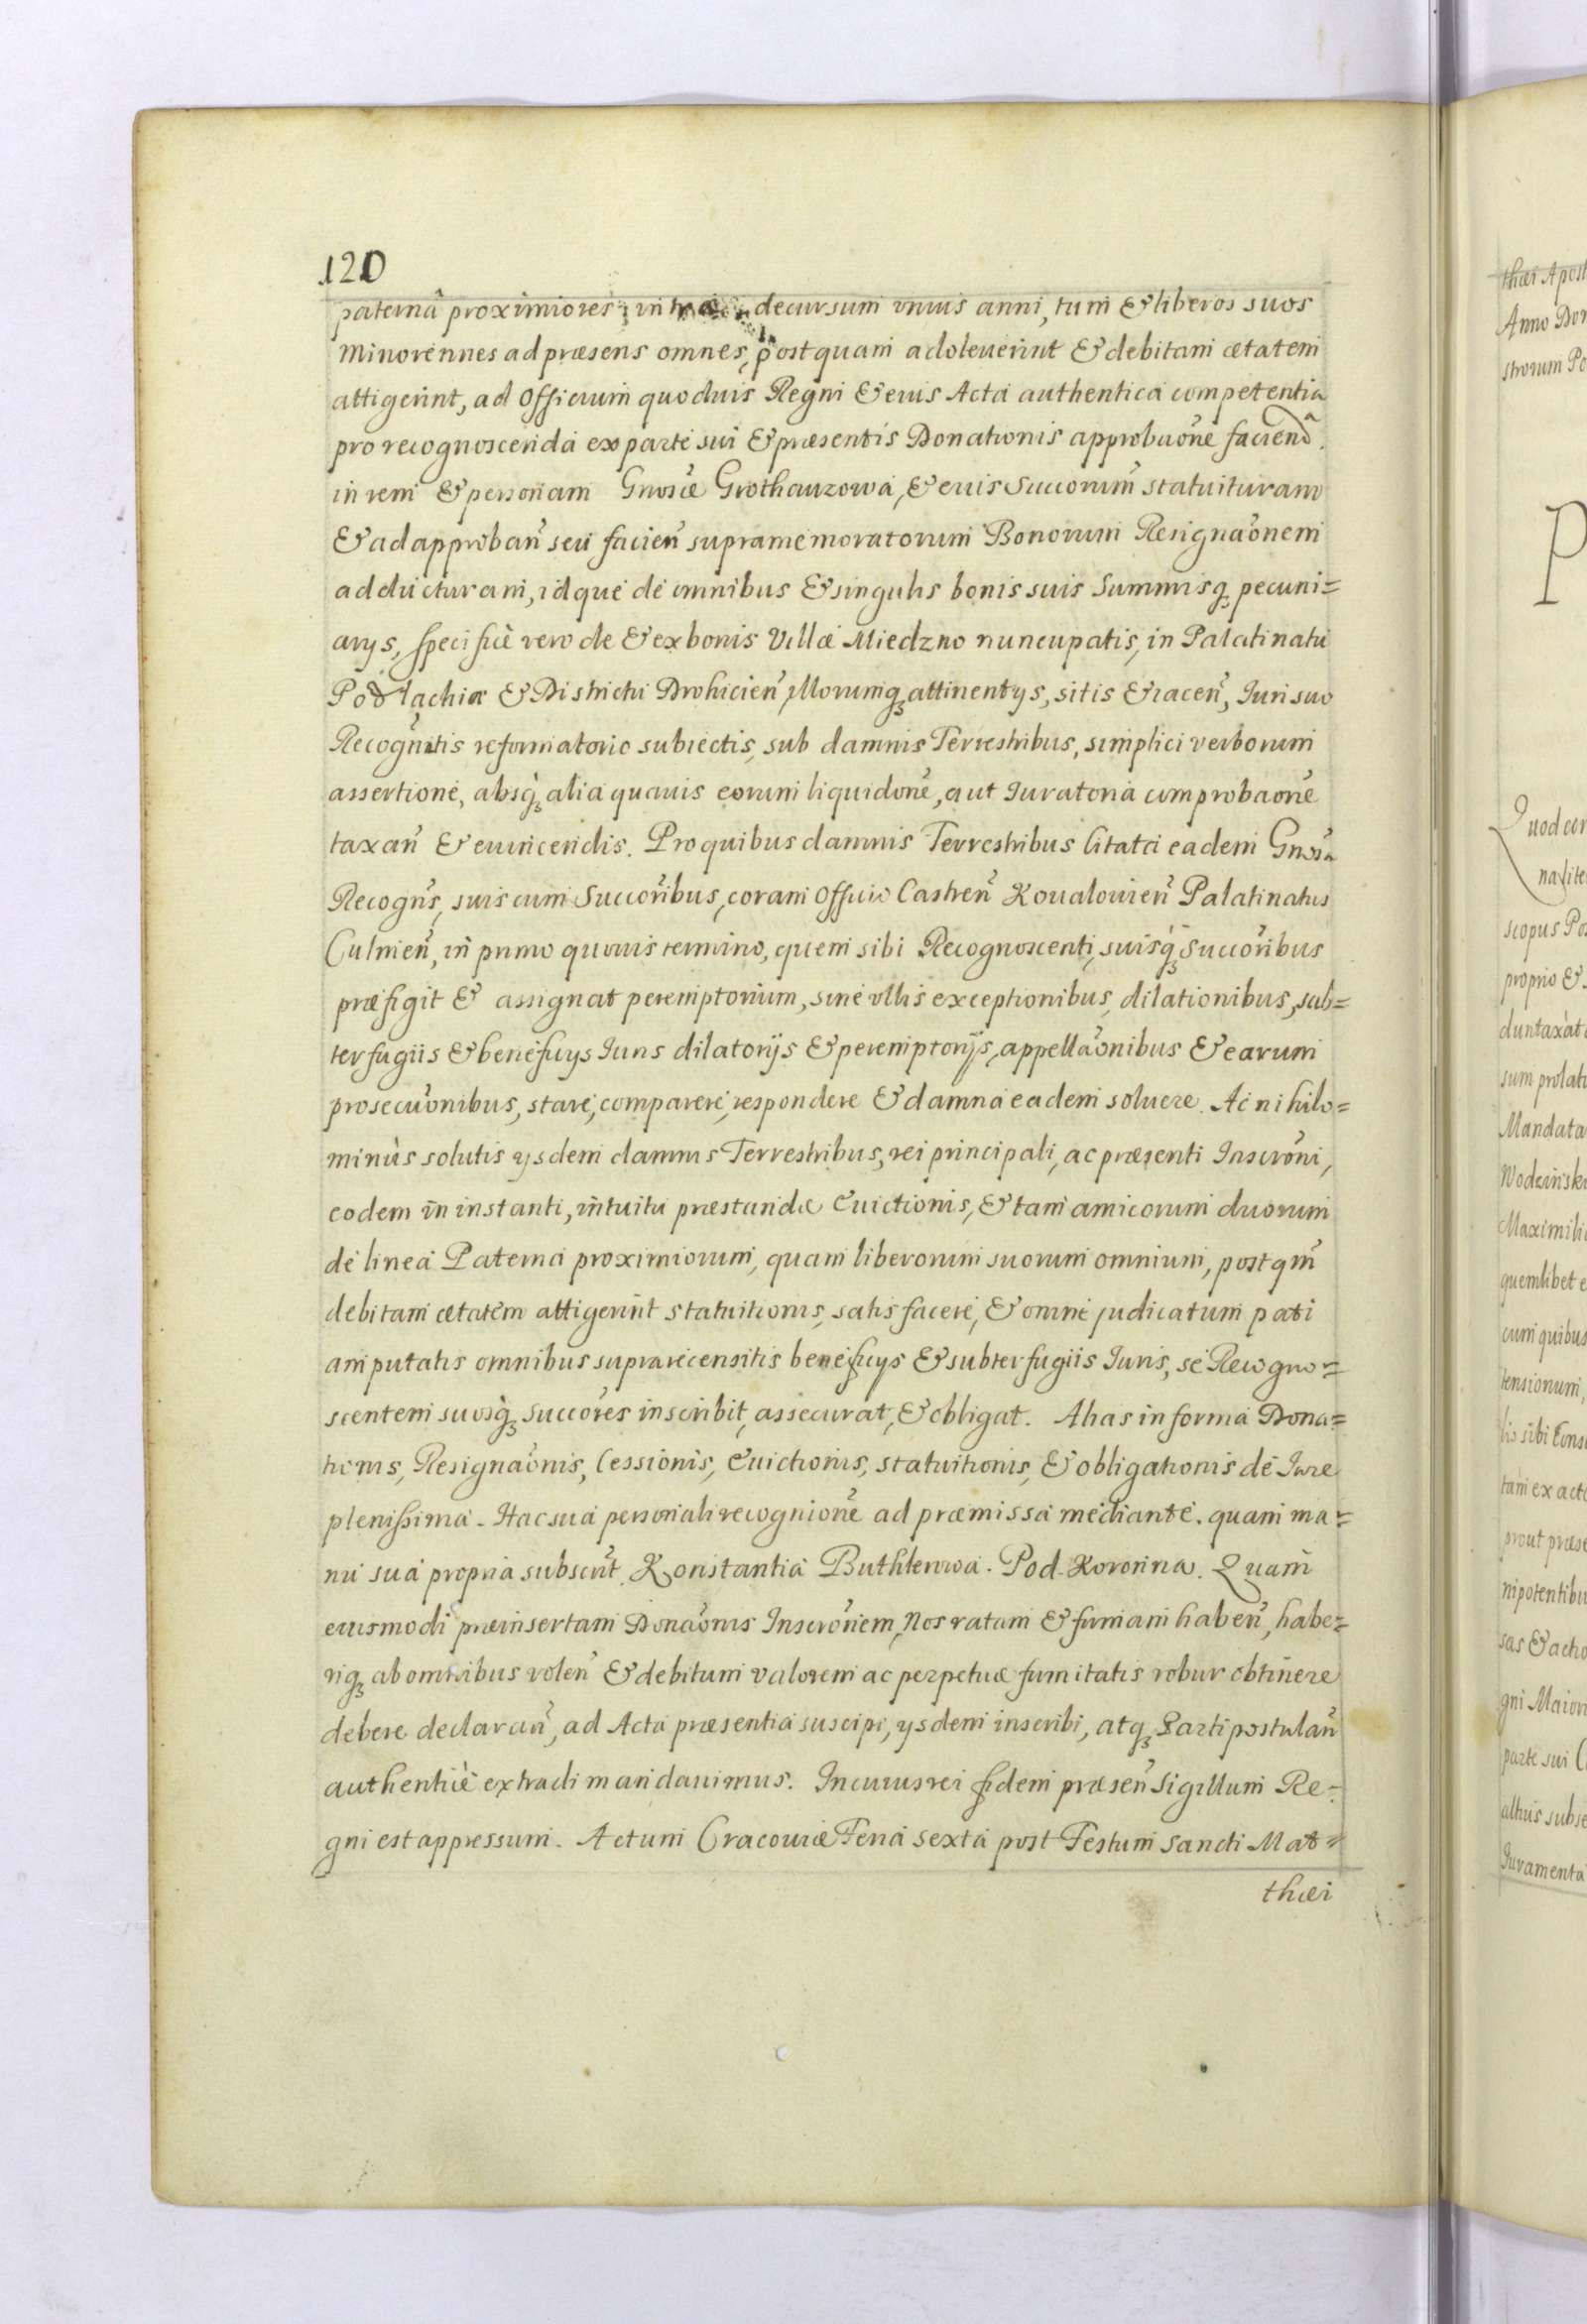 120
paternâ proximiores; intra decursum vnius anni, tum & liberos suos
Minorennes ad præsens omnes, postquam adoleuerint & debitam ætatem
attigerint, ad Officium quoduis Regni & eius Acta authentica competentia
pro recognoscenda ex parte sui & præsentis Donationis approbaoñe faciendâ.
in rem & personam Gnosæ Grothauzowa, & eius Succorum̃ statuituram
& ad approban̄ seu facien̄ supramemoratorum Bonorum Resignaõnem
adducturam, idque de omnibus & singulis bonis suis Summisq; pecuni=
arys, specificè vero de & ex bonis Villæ Miedzno nuncupatis, in Palatinatu
Podlachiæ & Districtu Drohicien̄, illorumq; attinentys, sitis & iacen̄, Iuri suo
Recogñitis reformatorio subiectis, sub damnis Terrestribus, simplici verborum
assertione, absq; alia quauis eorum liquidoñe, aut Iuratoria comprobaoñe
taxan̄ & euincendis. Pro quibus damnis Terrestribus Citata eadem Gnosa
Recogñs, suis cum Succoribus, coram Officio Castren̄ Koualouien̄ Palatinatus
Culmen̄, in primo quouis termino, quem sibi Recognoscenti, suisq; Succoribus
præfigit & assignat peremptorium, sine vllis exceptionibus, dilationibus, sub=
terfugiis & beneficys Iuris dilatorijs & peremptorijs, appellaõnibus & earum
prosecuõnibus, stare, comparere, respondere & damna eadem soluere. Ac nihilo=
minùs solutis ysdem damnis Terrestribus, rei principali, ac præsenti Inscroñi,
eodem in instanti, intuitu præstandæ Euictionis, & tam amicorum duorum
de linea Paterna proximiorum, quam liberorum suorum omnium, postqm̃
debitam ætatem attigerint statuitionis, satisfacere, & omne judicatum pati
amputatis omnibus suprarecensitis beneficys & subterfugiis Iuris, se Recogno=
scentem suosq; succores inscribit, assecurat, & obligat. Alias in forma Dona=
tionis, Resignaõnis, Cessionis, Euictionis, statuitionis, & obligationis de Iure
plenissima. Hac sua personali recognioñe ad præmissa mediante. quam ma=
nu sua propria subscrit̃. Konstantia Buthlerowa. Pod. Koronna. Quam
eiusmodi præinsertam Donaõnis Inscroñem, Nos ratam & firmam haben̄, habe=
riq; ab omnibus volen̄ & debitum valorem ac perpetuæ firmitatis robur obtinere
debere declaran̄, ad Acta præsentia suscipi, ysdem inscribi, atq; Parti postulan̄
authenticè extradi mandauimus. In cuius rei fidem præsen̄ Sigillum Re=
gni est appressum. Actum Cracouiæ Feria sexta post Festum Sancti Mat=
thæi